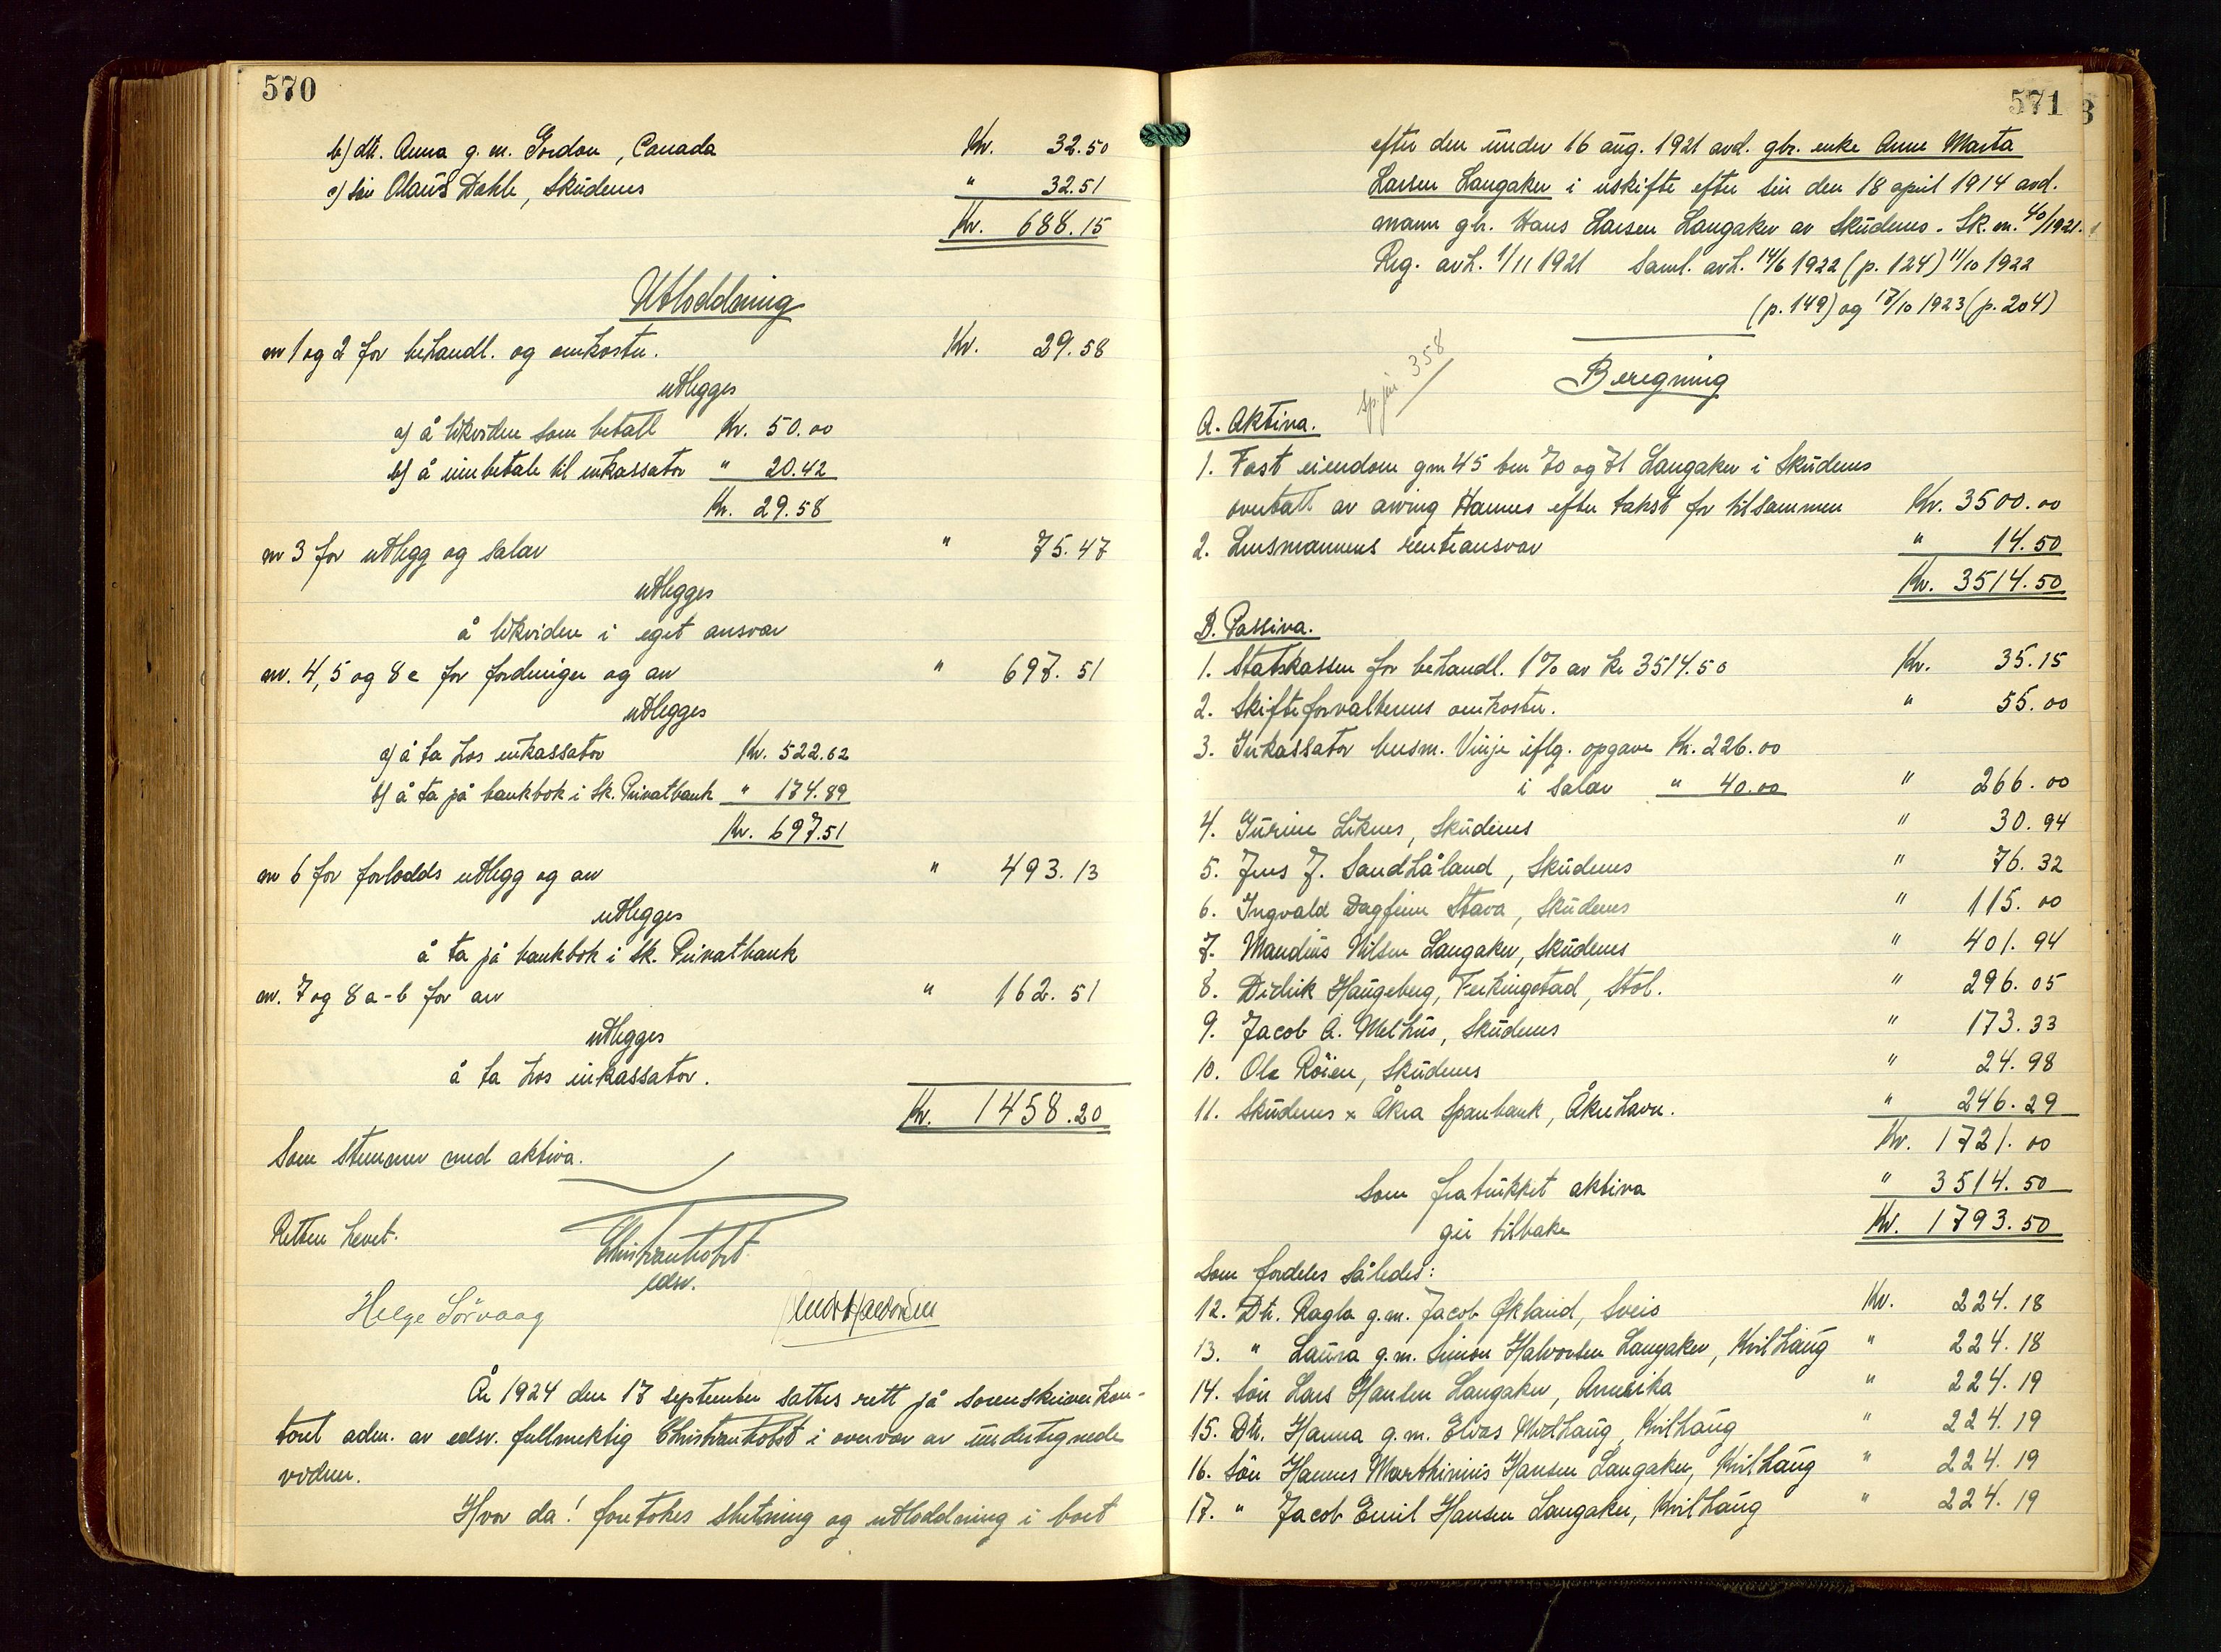 570
b) dtr. Anna g. m. Gordon, Canada Kr. 32.50
c) sön Olaus Dahle, Skudenes " 32.51
Kr. 688.15
Utloddning
nr 1 og 2 for behandl. og omkostn. Kr. 29.58
utlegges
a) å likvidere som betalt Kr. 50.00
b) å innbetale til inkassator " 20.42
Kr. 29.58
nr 3 for utlegg og salar " 75.47
utlegges
å likvidere i eget ansvar
nr. 4, 5 og 8 c for fordringer og arv " 697.51
utlegges
a) å ta hos inkassator Kr. 522.62
b) å ta på bankbok i Sk. Privatbank " 174.89
Kr. 697.51
nr 6 for forlodds utlegg og arv " 493.13
utlegges
å ta på bankbok i Sk. Privatbank
nr. 7 og 8 a-b for arv " 162.51
utlegges
å ta hos inkassator.
Kr. 1458.20
Som stemmer med aktiva.
Retten hevet.
edsv.
Helge Sörvaag
År 1924 den 17 september sattes rett på sorenskriverkon-
toret adm. av edsv. fullmektig i overvær av undertegnede
vidner.
Hvor da! foretokes slutning og utloddning i boet
571
efter den under 16 aug. 1921 avd. gbr. enke Anne Marta
Larsen Langaker i uskifte efter sin den 18 april 1914 avd.
mann gbr. Hans Larsen Langaker av Skudenes. Sk. m. 40/1921.
Reg. avh. 1/11 1921 Saml. avh. 14/6 1922 (p. 124) 11/10 1922
(p. 149) og 17/10 1923 (p. 204)
358
Beregning
A. Aktiva.
1. Fast eiendom gnr 45 bnr 70 og 71 Langaker i Skudenes
overtatt av arving Hannes efter takst for tilsammen Kr. 3500.00
2. Lensmannens renteansvar " 14.50
Kr. 3514.50
B. Passiva.
1. Statskassen for behandl. 1% av kr 3514.50 Kr. 35.15
2. Skifteforvalterens omkostn. " 55.00
3. Inkassator lensm. Vinje iflg. opgave Kr. 226.00
i salar " 40.00 " 266.00
4. Gurine Liknes, Skudenes " 30.94
5. Jens J. Sandhåland, Skudenes " 76.32
6. Ingvald Dagfinn Stava, Skudenes " 115.00
7. Mandius Nilsen Langaker, Skudenes " 401.94
8. Didrik Haugeberg, Ferkingstad, Stol. " 296.05
9. Jacob A. Melhus, Skudenes " 173.33
10. Ole Röien, Skudenes " 24.98
11. Skudenes & Åkra Sparebank, Åkrehavn. " 246.29
Kr. 1721.00
Som fratrukket aktiva " 3514.50
gir tilbake Kr. 1793.50
Som fordeles således:
12. Dtr. Ragla g.m. Jacob Økland, Sveio Kr. 224.18
13. " Laura g.m. Simon Halvorsen Langaker, Kvilhaug " 224.18
14. Sön Lars Hansen Langaker, Amerika " 224.19
15. Dtr. Hanna g.m. Elias Kvilhaug, Kvilhaug " 224.19
16. Sön Hannes Marthinius Hansen Langaker, Kvilhaug " 224.19
17. " Jacob Emil Hansen Langaker, Kvilhaug " 224.19